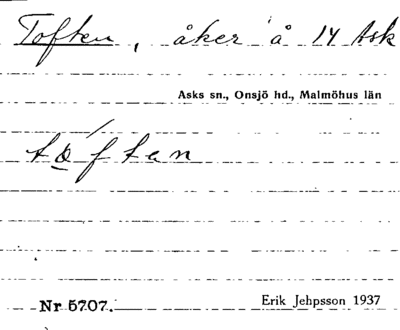 Toften, åker å 14 Ask
Asks sn., Onsjö hd., Malmöhus län
tåften
Nr 5707.
Erik Jehpsson 1937